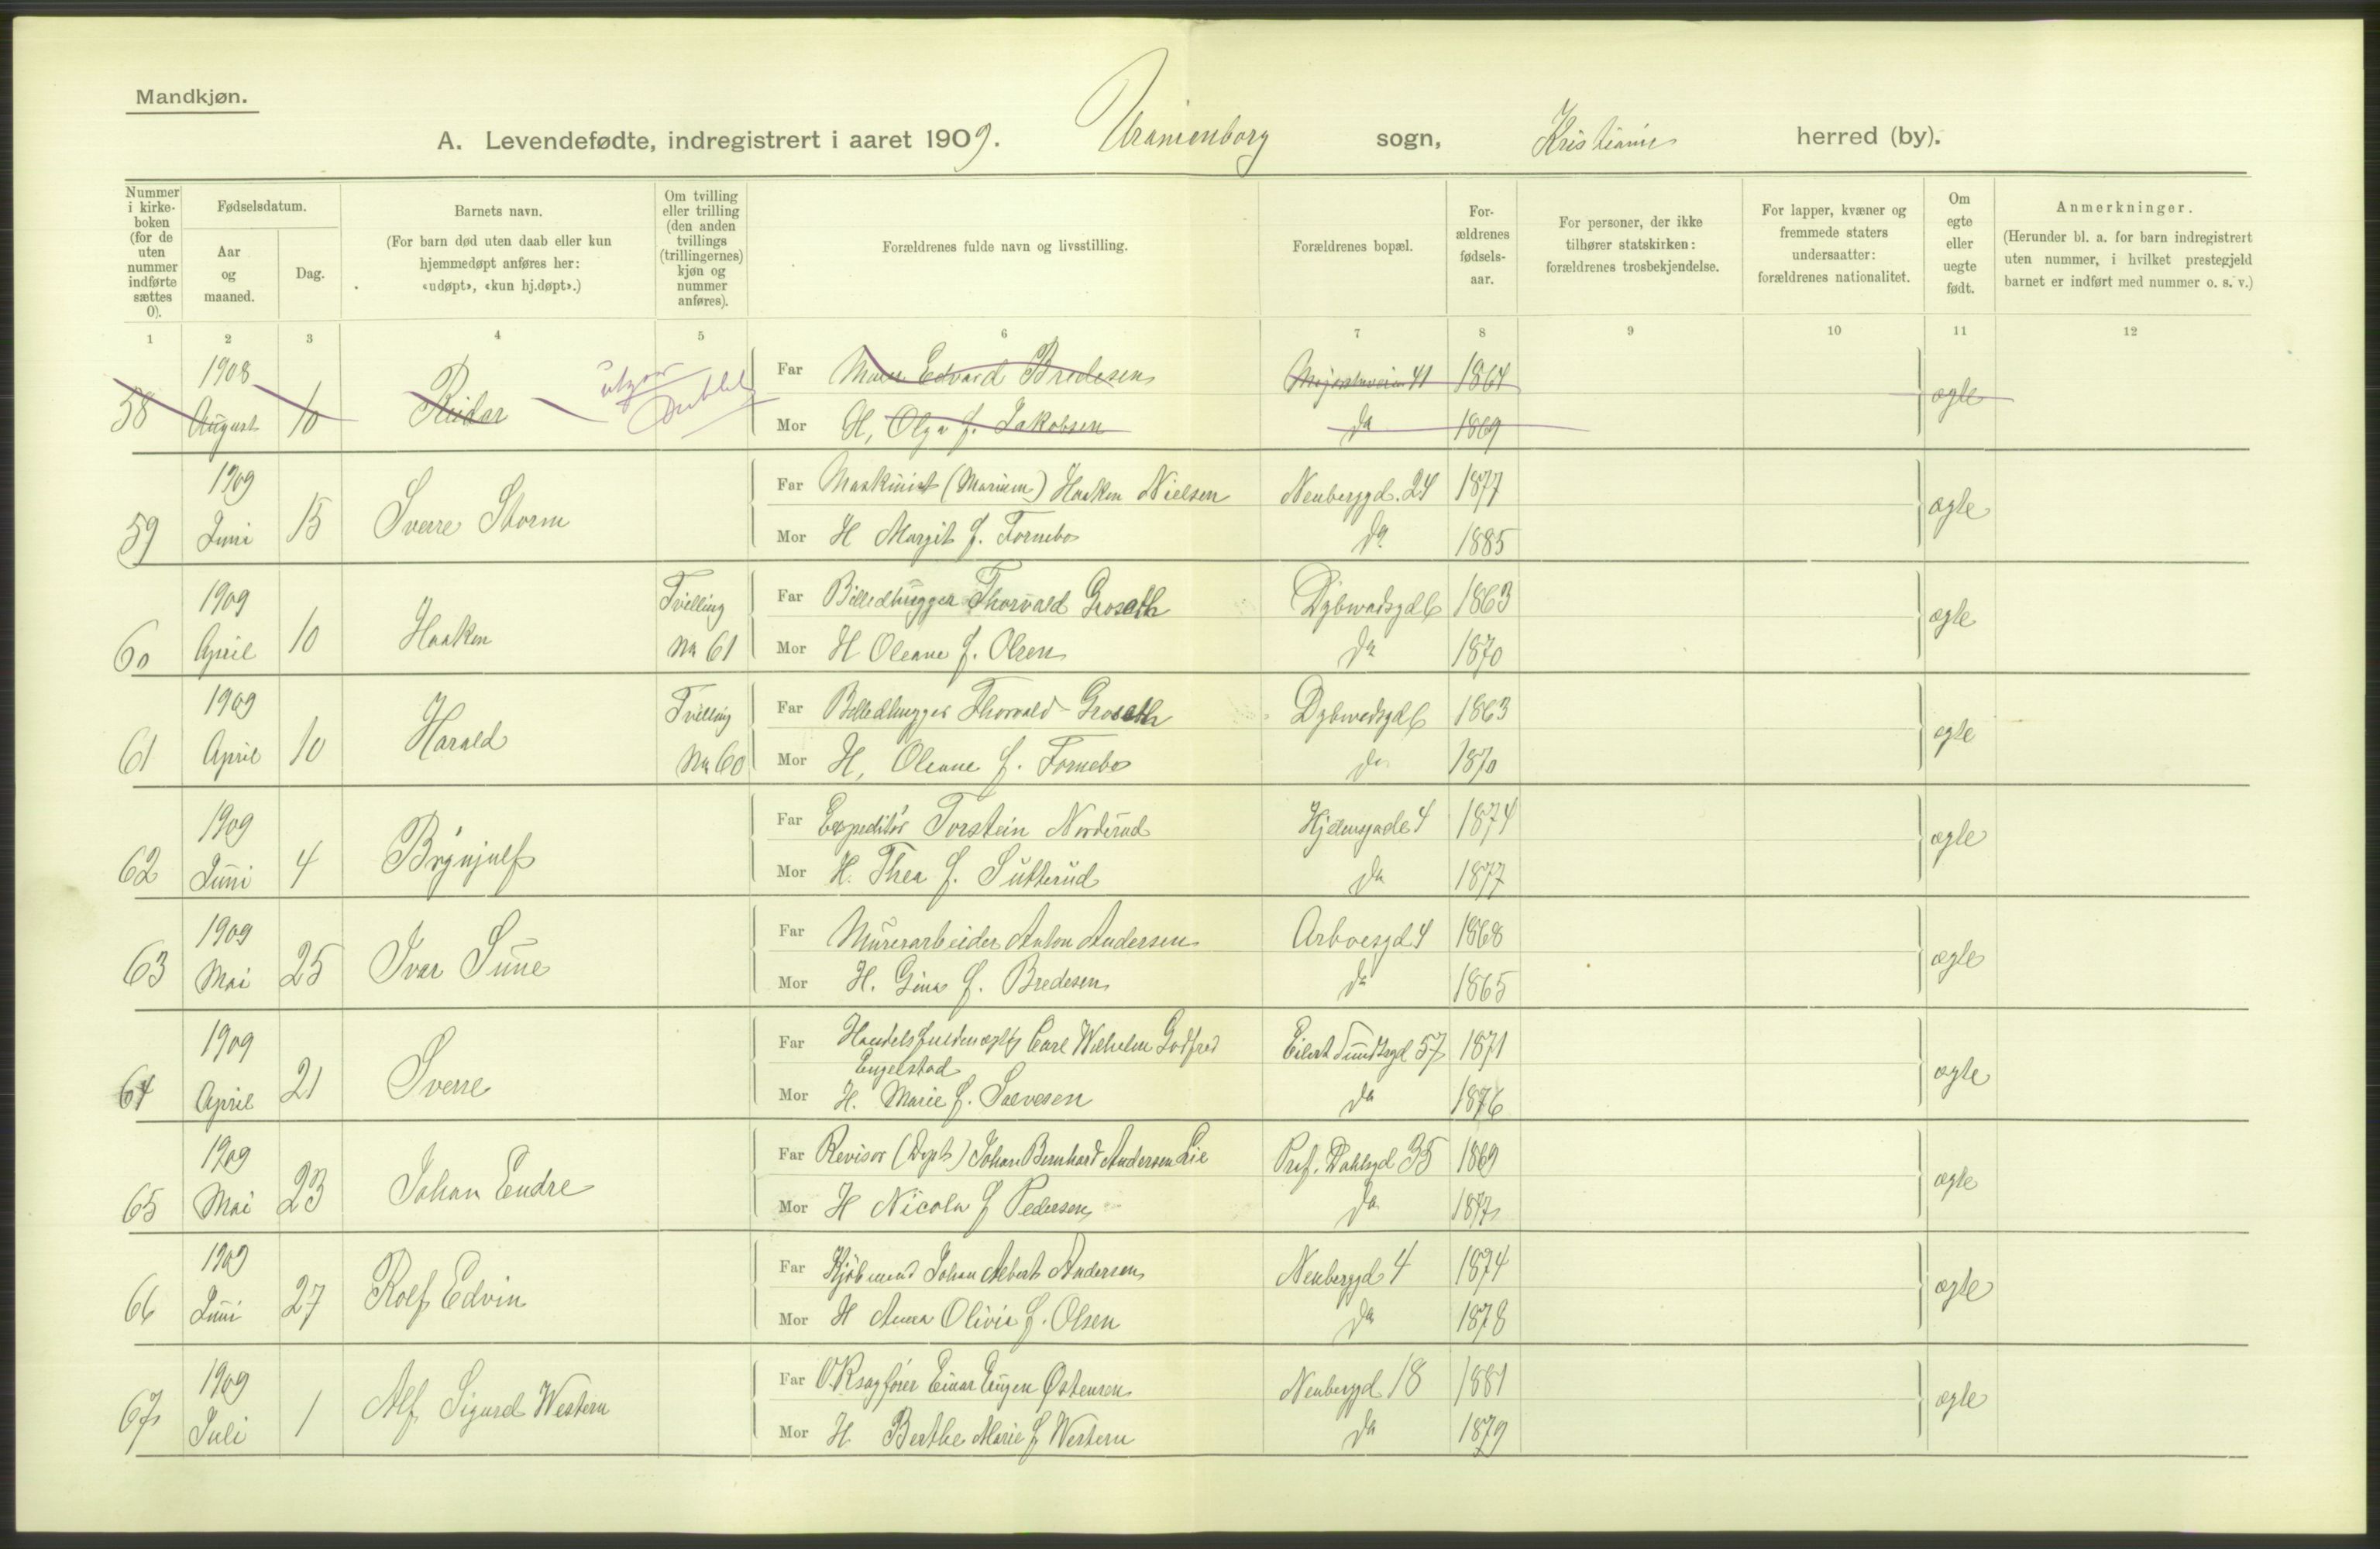 Mandkjøn.
A. Levendefødte, indregistrert i aaret 1909. Uranienborg sogn, Kristiania herred (by).
Nummer i kirke-boken (for de uten nummer indførte sættes 0).
Fødselsdatum.
Aar og maaned.
Dag.
Barnets navn.
(For barn død uten daab eller kun hjemmedøpt anføres her: «udøpt», «kun hj.døpt».)
Om tvilling eller trilling (den anden tvillings (trillingernes) kjøn og nummer anføres).
Forældrenes fulde navn og livsstilling.
Forældrenes bopæl.
For-ældrenes fødsels-aar.
For personer, der ikke tilhører statskirken: forældrenes trosbekjendelse.
For lapper, kvæner og fremmede staters undersaatter: forældrenes nationalitet.
Om egte eller uegte født.
Anmerkninger.
(Herunder bl. a. for barn indregistrert uten nummer, i hvilket prestegjeld barnet er indført med nummer o. s. v.)
1 2 3 4 5 6 7 8 9 10 11 12
1908 Far Edvard Bredesen 41 1864
58 August 10 Reidar utgaar Dublet ægte
Mor H, Olga f. Jakobsen do 1869
1909 Far Maskinist (Marinen) Haakon Nielsen Neuberggd. 24 1877
59 Juni 15 Sverre Storm ægte
Mor H Margit f. Fornebo do 1885
1909 Tvilling Far Billedhugger Thorvald Groseth Dybwadsgd 6 1863
60 April 10 Haakon ægte
No 61 Mor H Oleane f. Olsen do 1870
1909 Tvilling Far Billedhugger Thorvald Groseth Dybwadsgd 6 1863
61 April 10 Harald ægte
No 60 Mor H, Oleane f. Fornebo do 1870
1909 Far Expeditør Torstein Norderud Hjelmsgade 4 1874
62 Juni 4 Brynjulf ægte
Mor H. Thea f. Sutterud do 1877
1909 Far Murerarbeider Anton Andersen Arboesgd 4 1868
63 Mai 25 Ivar Sune ægte
Mor H. Gina f. Bredesen do 1865
1909 Far Handelsfuldmægtig Carl Wilhelm Godfred Engelstad Eilert Sundtsgd 57 1871
64 April 21 Sverre ægte
Mor H. Marie f. Salvesen do 1876
1909 Far Revisor (Dept) Johan Bernhard Andersen Lie Prof. Dahlsgd 35 1869
65 Mai 23 Johan Endre ægte
Mor H Nicola f Pedersen do 1877
1909 Far Kjøbmand Johan Albert Andersen Neuberggd 4 1874
66 Juni 27 Rolf Edvin ægte
Mor H Anna Olivia f. Olsen do 1878
1909 Far O.R.sagfører Einar Eugen Østensen Neuberggd 18 1881
67 Juli 1 Alf Sigurd Western ægte
Mor H Berthe Marie f Western do 1879